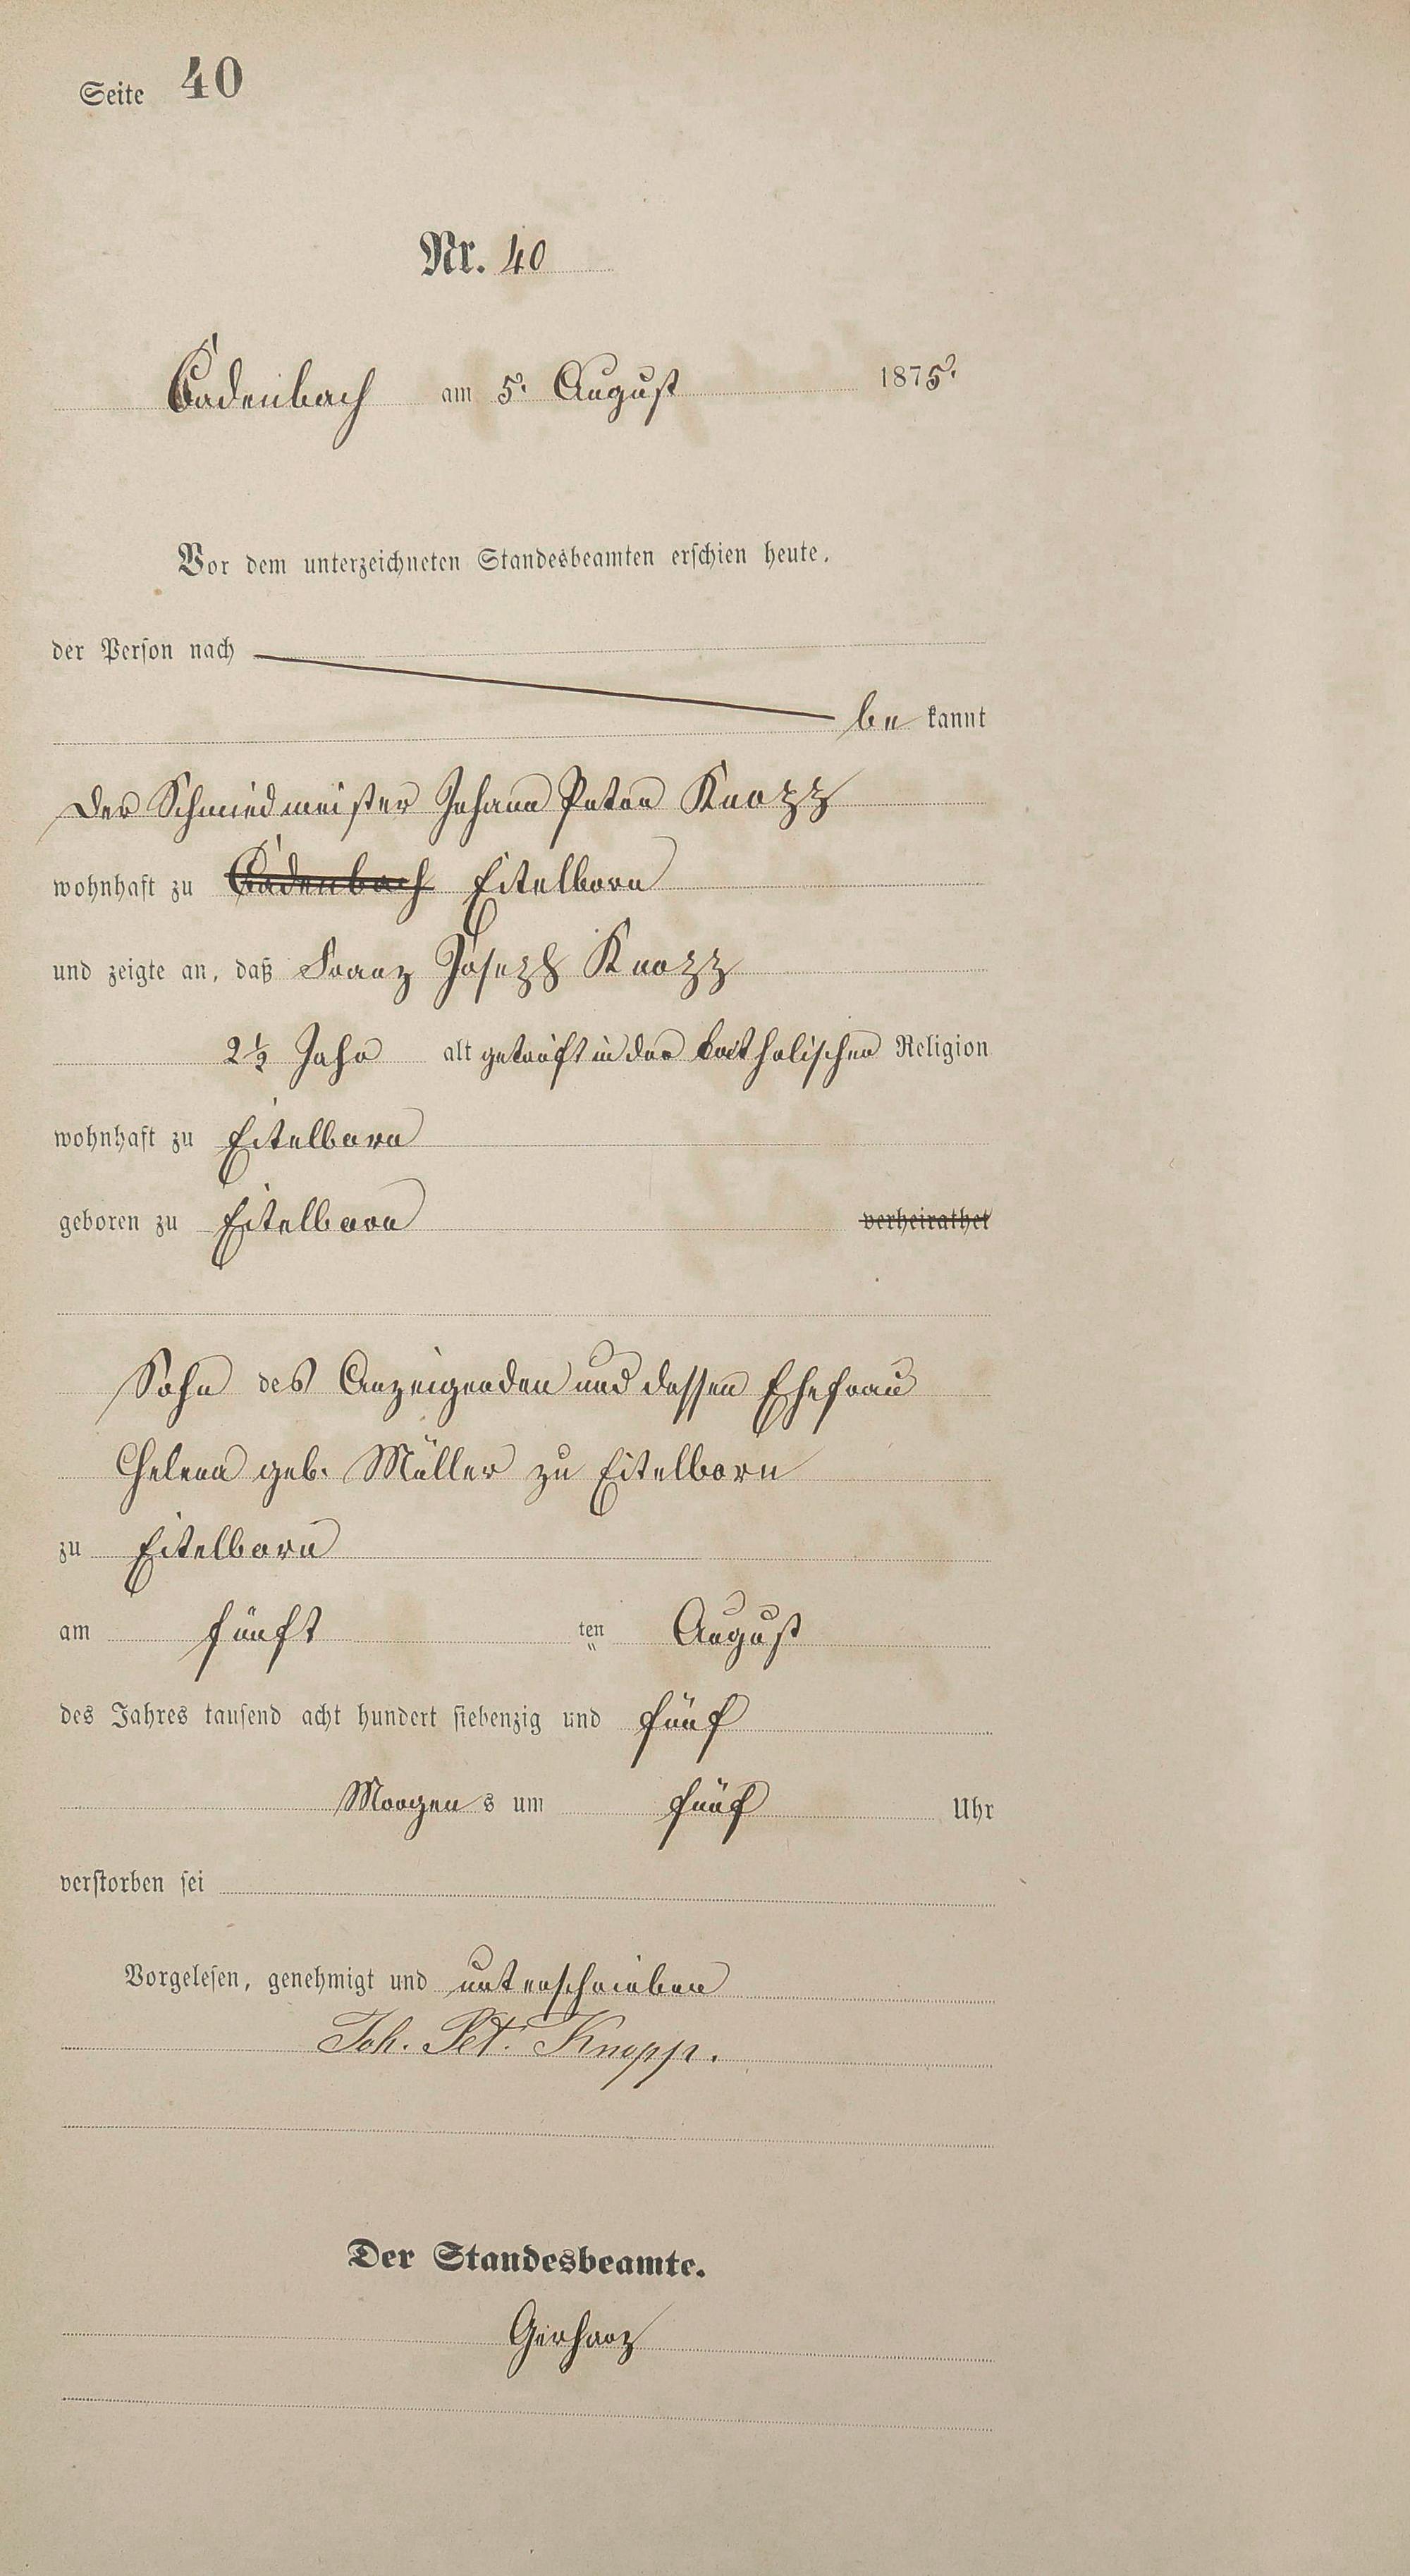 Seite 40
Nr. 40
Cadenbach am 5. August 1875.
Vor dem unterzeichneten Standesbeamten erschien heute,
der Person nach
be kannt
der Schmiedmeister Johann Peter Knopp
wohnhaft zu Cadenbach Eitelborn
und zeigte an, daß Franz Joseph Knopp
2½ Jahr alt getauft in der katholischen Religion
wohnhaft zu Eitelborn
geboren zu Eitelborn verheirathet
Sohn des Anzeigenden und dessen Ehefrau
Helena geb. Müller zu Eitelborn
zu Eitelborn
am fünft ten August
des Jahres tausend acht hundert siebenzig und fünf
Morgen s um fünf Uhr
verstorben sei
Vorgelesen, genehmigt und unterschrieben
Joh. Pet. Knopp.
Der Standesbeamte.
Gerharz